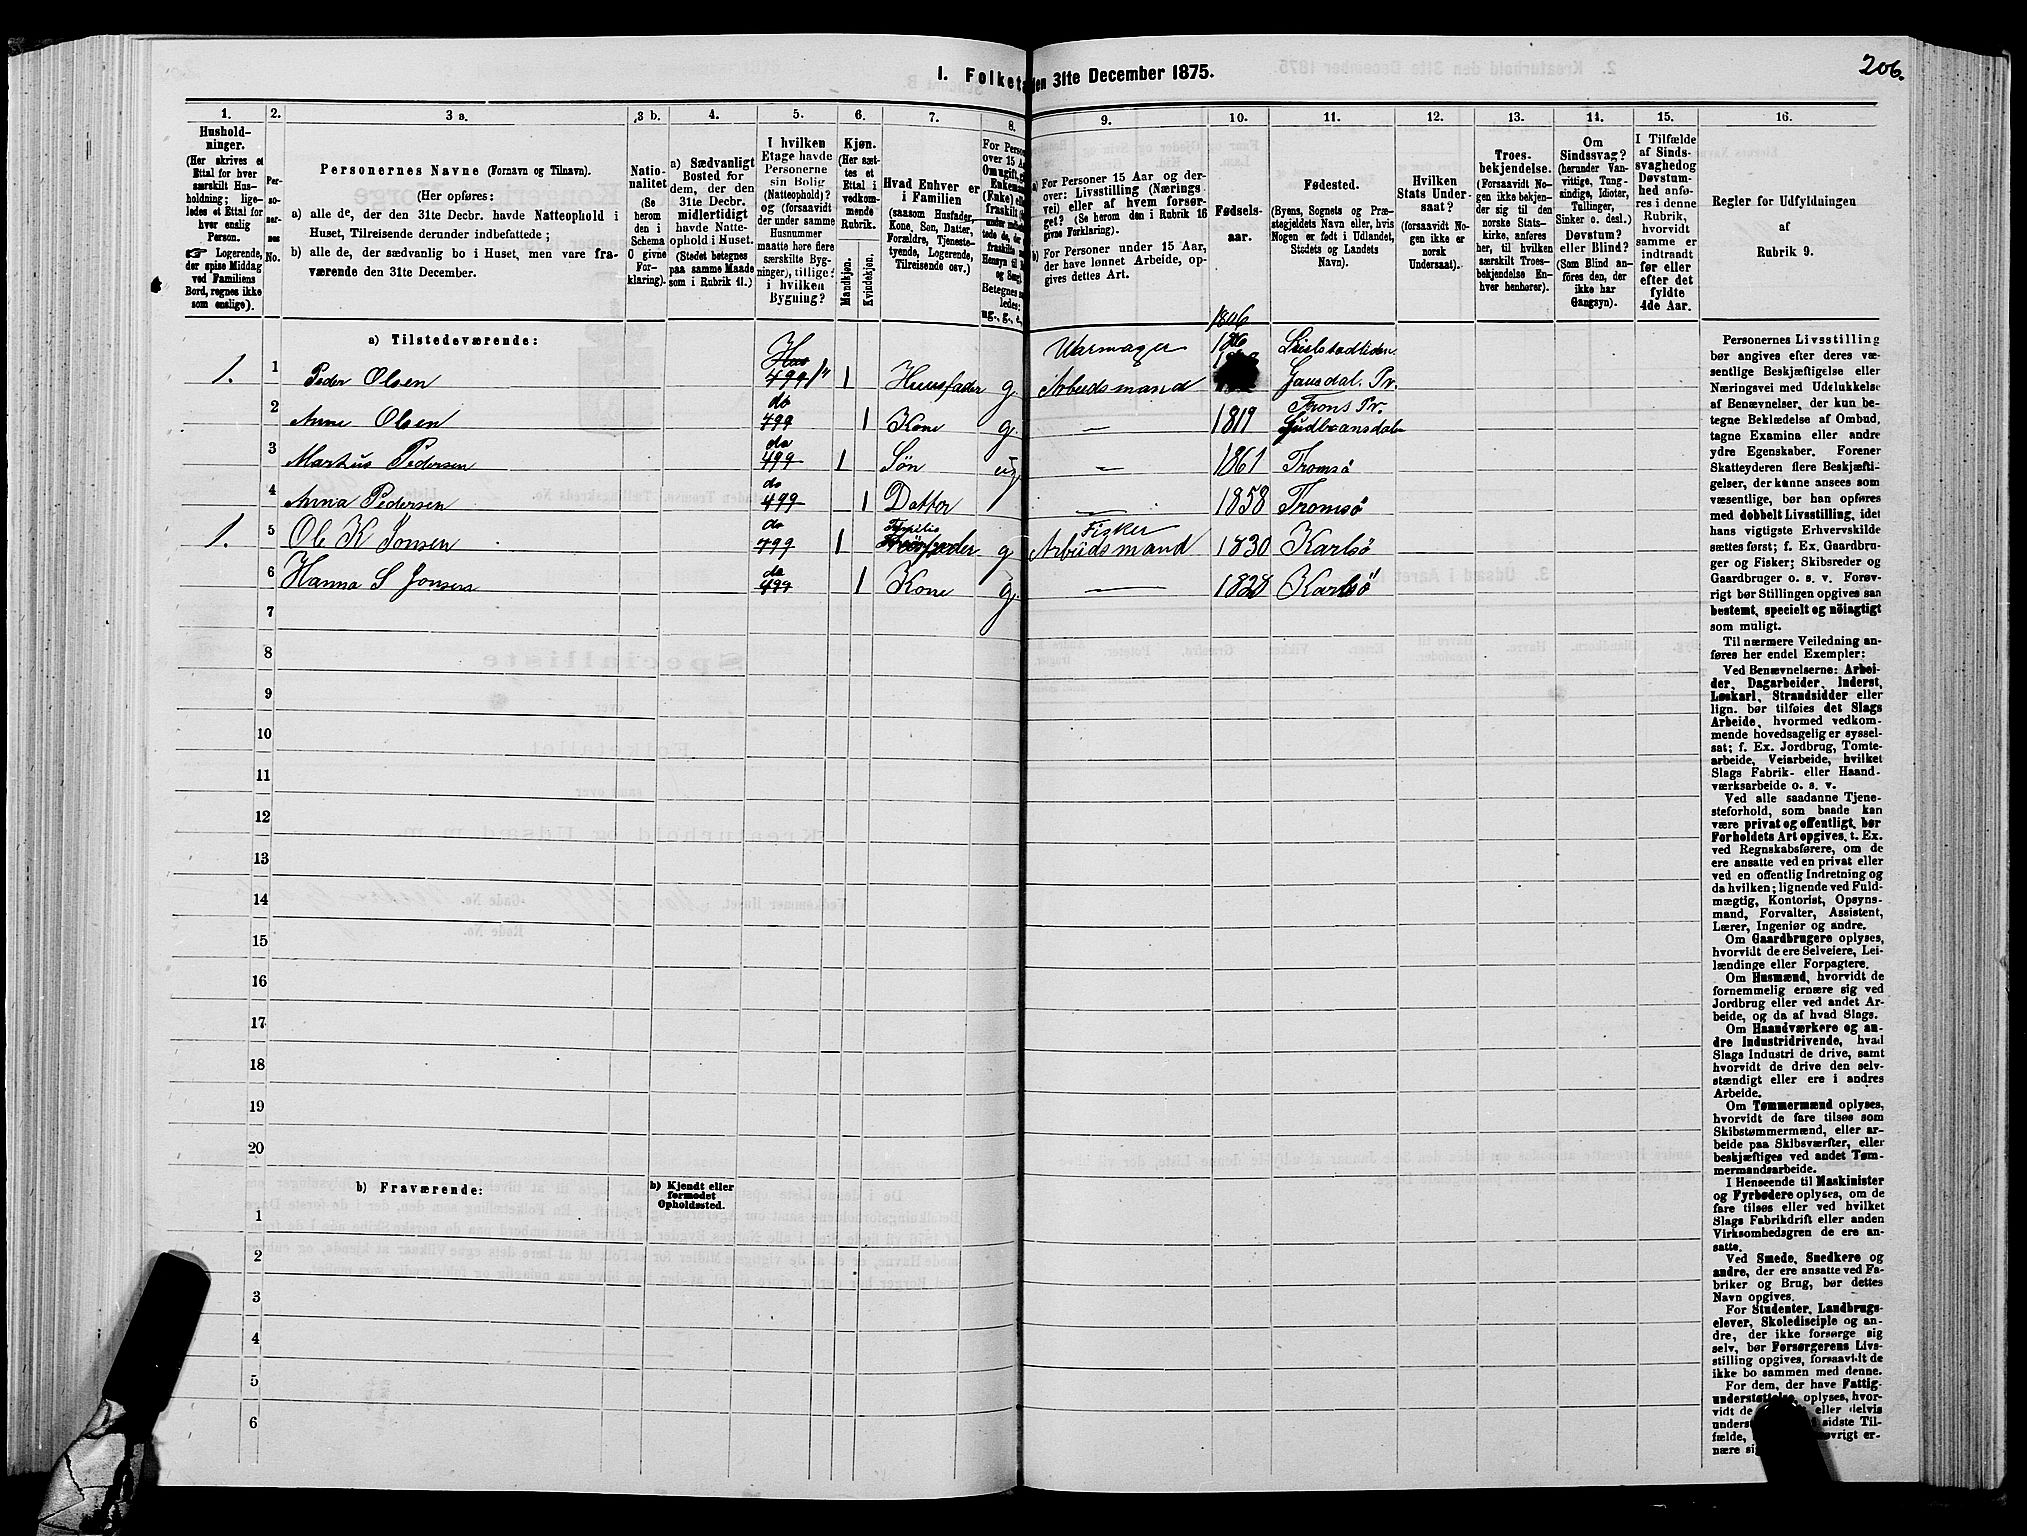 206.
I. Folketæ
den 31te December 1875.
1.
Hushold-
ninger.
(Her skrives et
Ettal for hver
særskilt Hus-
holdning; lige-
ledes et Ettal for
hver enslig
Person.
☞ Logerende,
der spise Middag
ved Familiens
Bord, regnes ikke
som enslige).
2.
Per-
so-
ner-
nes
No.
3 a.
Personernes Navne (Fornavn og Tilnavn).
(Her opføres:
a) alle de, der den 31te Decbr. havde Natteophold i
Huset, Tilreisende derunder indbefattede;
b) alle de, der sædvanlig bo i Huset, men vare fra-
værende den 31te December.
3 b.
Natio-
nalitet
(Se
herom
den i
Schema
O givne
For-
klaring).
4.
a) Sædvanligt
Bosted for
dem, der den
31te Decbr.
midlertidigt
havde Natte-
ophold i Huset.
(Stedet betegnes
paa samme Maade
som i Rubrik 11.)
5.
I hvilken
Etage havde
Personerne
sin Bolig
(Natteophold)?
og (forsaavidt
der under samme
Husnummer
maatte høre flere
særskilte Byg-
ninger), tillige:
i hvilken
Bygning?
6.
Kjøn.
(Her sæt-
tes et
Ettal i
vedkom-
mende
Rubrik.
Mandkjøn.
Kvindekjøn.
7.
Hvad Enhver er
i Familien
(saasom Husfader,
Kone, Søn, Datter,
Forældre, Tjeneste-
tyende, Logerende,
Tilreisende osv.)
8.
For Person
over 15 Aa
Om ugift, g
Enkema
(Enke) ell
fraskilt
ledes:
ug., g., e.,
9.
a) For Personer 15 Aar og der-
over: Livsstilling (Nærings-
vei) eller af hvem forsør-
get? (Se herom den i Rubrik 16
givne Forklaring).
b) For Personer under 15 Aar,
der have lønnet Arbeide, op-
gives dettes Art.
10.
Fødsels-
aar.
11.
Fødested.
(Byens, Sognets og Præ-
stegjeldets Navn, eller, hvis
Nogen er født i Udlandet,
Stedets og Landets
Navn).
12.
Hvilken
Stats Under-
saat?
(forsaavidt No-
gen ikke er
norsk
Undersaat).
13.
Troes-
bekjendelse.
(Forsaavidt No-
gen ikke bekjen-
der sig til den
norske Stats-
kirke, anføres
her, til hvilken
særskilt Troes-
bekjendelse En-
hver henhører).
14.
Om
Sindssvag?
(herunder Van-
vittige, Tung-
sindige, Idioter,
Tullinger,
Sinker o. desl.)
Døvstum?
eller Blind?
(Som Blind an-
føres den, der
ikke har
Gangsyn).
15.
I Tilfælde
af Sinds-
svaghed og
Døvstum-
hed anfø-
res i denne
Rubrik,
hvorvidt
samme er
indtraadt
før eller
efter det
fyldte
4de Aar.
16.
Regler for Udfyldningen
af
Rubrik 9.
a) Tilstedeværende:
1. 1 Peder Olsen Hus 499 1" 1 Huusfader g. Uarmager Arbeidsmand 1806 Gausdal. Pr.
2 Anne Olsen do 499 1 Kone g. — 1819 Frons Pr. Gudbransdalen
3 Markus Pedersen do 499 1 Søn ug — 1861 Tromsø
4 Anna Pedersen do 499 1 Datter — 1858 Tromsø
1. 5 Ole K Jonsen do 499 1 g Fisker Arbeidsmand 1830 Karlsø
6 Hanna S Jonsen do 499 1 Kone g. — 1828 Karlsø
7
8
9
10
11
12
13
14
15
16
17
18
19
20
b) Fraværende:
b) Kjendt eller
formodet
Opholdssted.
1
2
3
4
5
6
Personernes Livsstilling
bør angives efter deres væ-
sentlige Beskjæftigelse eller
Næringsvei med Udelukkelse
af Benævnelser, der kun be-
tegne Beklædelse af Ombud,
tagne Examina eller andre
ydre Egenskaber. Forener
Skatteyderen flere Beskjæfti-
gelser, der kunne ansees som
væsentlige, bør han opføres
med dobbelt Livsstilling, idet
hans vigtigste Erhvervskilde
sættes først; f. Ex. Gaardbru-
ger og Fisker; Skibsreder og
Gaardbruger o. s. v. Forøv-
rigt bør Stillingen opgives saa
bestemt, specielt og nöiagtigt
som muligt.
Til nærmere Veiledning an-
føres her endel Exempler:
Ved Benævnelserne: Arbei-
der, Dagarbeider, Inderst,
Løskarl, Strandsidder eller
lign. bør tilføies det Slags
Arbeide, hvormed vedkom-
mende hovedsagelig er syssel-
sat; f. Ex. Jordbrug, Tomte-
arbeide, Veiarbeide, hvilket
Slags Fabrik- eller Haand-
værksarbeide o. s. v.
Ved alle saadanne Tjene-
steforhold, som baade kan
være privat og offentligt, bør
Forholdets Art opgives, t. Ex.
ved Regnskabsførere, om de
ere ansatte ved en privat eller
ved en offentlig Indretning og
da hvilken; lignende ved Fuld-
mægtig, Kontorist, Opsyns-
mand, Forvalter, Assistent,
Lærer, Ingeniør og andre.
Om Gaardbrugere oplyses,
hvorvidt de ere Selveiere, Lei-
lændinge eller Forpagtere.
Om Husmænd, hvorvidt de
fornemmelig ernære sig ved
Jordbrug eller ved andet Ar-
beide, og da af hvad Slags.
Om Haandværkere og an-
dre Industridrivende, hvad
Slags Industri de drive, samt
hvorvidt de drive den selv-
stændigt eller ere i andres
Arbeide.
Om Tømmermænd oplyses,
hvorvidt de fare tilsøs som
Skibstømmermænd, eller ar-
beide paa Skibsværfter, eller
beskjæftiges ved andet Tøm-
mermandsarbeide.
I Henseende til Maskinister
og Fyrbødere oplyses, om de
fare tilsøs eller ved hvilket
Slags Fabrikdrift eller anden
Virksomhedsgren de ere an-
satte.
Ved Smede, Snedkere og
andre, der ere ansatte ved Fa-
briker og Brug, bør dettes
Navn opgives.
For Studenter, Landbrugs-
elever, Skoledisciple og an-
dre, der ikke forsørge sig
selv, bør Forsørgerens Livs-
stilling opgives, forsaavidt de
ikke bo sammen med denne.
For dem, der have Fattig-
understøttelse, oplyses, hvor-
vidt de eller delvis
underst sidste Til-
fælde, øvrigt er-
nære si